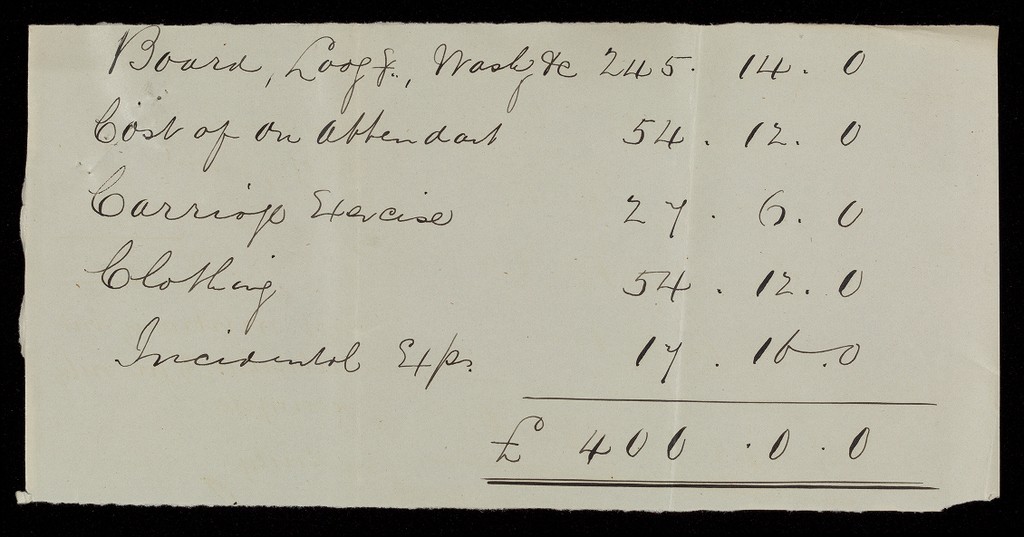 Board, Lodg &., Washg &c 245. 14. 0
Cost of an Attendant 54. 12. 0
Carriage Exercise 27. 6. 0
Clothing 54. 12. 0
Incidental Exps. 17. 16. 0
£ 400. 0. 0